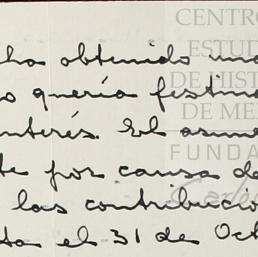 ha obtenido una
quería festina
interés. El asun
te por causa de
las contribucio
ta el 31 de Oct
CENTRO
ESTUD
DE HIST
DE ME
FUNDA
Carlos